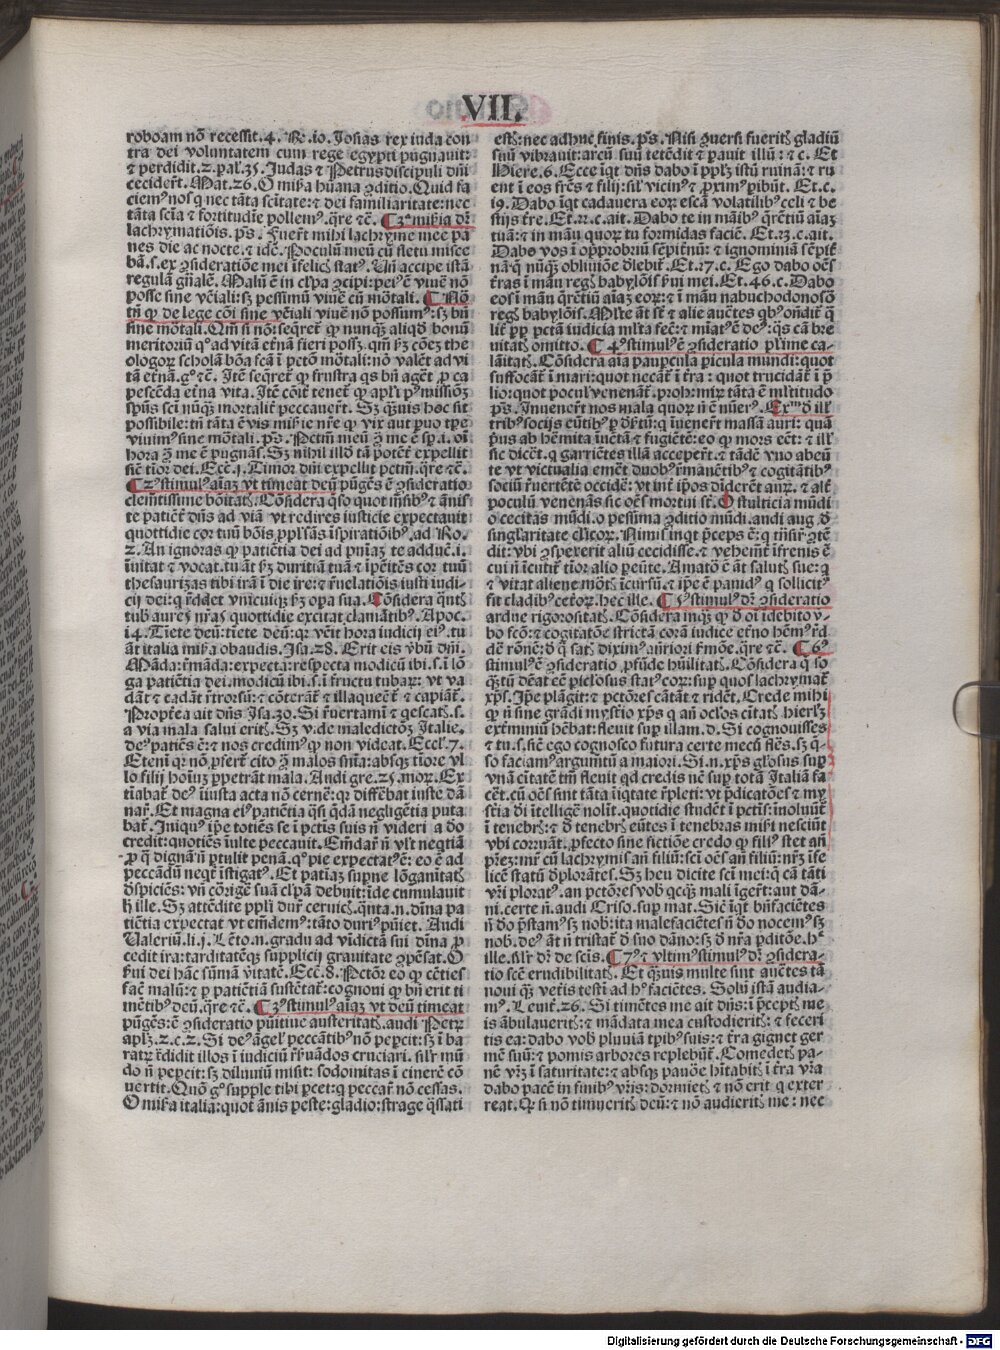 VII.
roboam nō recessit. 4. R̄. 10. Josias rex iuda con
tra dei voluntatem cum rege egypti pugnauit:
⁊ perdidit. 2. pal. 35. Judas ⁊ Petrus discipuli dn̄i
cecider̄t. Mat. 26. O mis̄a hūana ꝯditio. Quid fa
ciemus nos q nec tāta scītate: ⁊ dei familiaritate: nec
tāta sciā ⁊ fortitudīe pollemꝰ. q̄re ⁊c̄.
lachrymatiōis. ps̄. Fuer̄t mihi lachryme mee pa
nes die ac nocte. ⁊ idē. Poculū meū cū fletu misce
bā. s. ex ꝯsideratiōe mei īfelicꝭ statꝰ. Uñ accipe istā
regulā gn̄alē. Malū ē in cl̄pa ꝯcipi: peiꝰ ē viuē nō
posse sine vēiali: sꝫ pessimū viuē cū mōtali. ¶ Nō
tn̄ ꝙ de lege cōi sine vēiali viuē nō possumꝰ: sꝫ bn̄
sine mōtali. Qm̄ si nō: seq̄ret̄ ꝙ nunqꝫ aliqd̄ bonū
meritoriū qͦ ad vitā et̄nā fieri possꝫ. qm̄ ꝑꝫ cōeꝫ the
ologoꝝ scholā bōa scā ī pctō mōtali: nō valēt ad vi
tā et̄nā. gͦ ⁊c̄. Itē seq̄ret̄ ꝙ frustra qs bn̄ aget̄ ꝓ ca
pescēda et̄na vita. Itē cōit̄ tenet̄ ꝙ apl̄i pꝰ missiōꝫ
spūs sc̄i nūqꝫ mortalit̄ peccauer̄t. Sꝫ qꝫuis hoc sit
possibile: tn̄ tāta ē vis mis̄ie nr̄e ꝙ vix aut ꝑuo tp̄e
viuimꝰ sine mōtali. ps̄. Petm̄ meū ꝯ me ē sp̄. i. oī
hora ꝯ me ē pugnās. Sꝫ nihil illd̄ tā pōtēt̄ expellit
sic̄ tīor dei. Ecc̄. 1. Timor dn̄i expellit petm̄. q̄re ⁊c̄.
¶ 2ꝰ stimulꝰ aīaꝫ vt timeat deū pūgēs ē ꝯsideratio
clemētissime bōitatꝭ. Cōsidera q̄so quot m̄sibꝰ ⁊ ānis
te patiēt̄ dn̄s ad viā vt redires iusticie expectauit
quottidie cor tuū bōis ꝓpl̄sās īspiratiōibꝰ. ad Ro.
2. An ignoras ꝙ patiētia dei ad pn̄iaꝫ te adducē. i.
īuitat ⁊ vocat. tu āt ẜꝫ duritiā tuā ⁊ īpēitēs cor tuū
thesaurizas tibi irā ī die ire: ⁊ r̄uelatiōis iusti iudi-
cij dei: q r̄ddet vnicuiqꝫ ẜꝫ oꝑa sua. Cōsidera qn̄tꝭ
tub aureꝫ nr̄aꝫ quottidie excitat clamātibꝰ. Apoc.
14. Tiete deū: tiete deū: qꝛ vēit hora iudicij eiꝰ. tu
āt italia mis̄a obaudis. Isa. 28. Erit eis vbū dn̄i.
Māda: r̄māda: expecta: respecta modicū ibi. s. ī lō
ga patiētia dei. modicū ibi. s. ī fructu tubaꝝ: vt va
dāt ⁊ cadāt r̄trorsū: ⁊ cōterāt̄ ⁊ illaqueēt̄ ⁊ capiāt̄.
Propt̄ea ait dn̄s Isa. 30. Si r̄uertamī ⁊ qescatꝭ. s.
a via mala salui eritꝭ. Sꝫ v: de maledictōꝫ Italie.
deꝰ patiēs ē: ⁊ nos credimꝰ ꝙ non videat. Eccl̄. 7.
Eteni qꝛ nō ꝓfert̄ cito ꝯ malos sn̄ia: absqꝫ tīore vl
lo filij hoīuꝫ ꝑpetrāt mala. Audi gre. 25. moꝝ. Ex
tīabat̄ deꝰ īiusta acta nō cernē: qꝛ differ̄bat iuste dā
nar̄. Et magna eiꝰ patiētia q̄si qdā negligētia puta
bat̄. Iniquꝰ ip̄e toties se ī pctīs suis n̄ videri a dō
credit: quotiēs īulte peccauit. Emēdar̄ n̄ vl̄t neqtiā
ꝓ q̄ dignā n̄ ꝑtulit penā. qꝰ pie expectatꝰ ē: eo ē ad
peccādū neqꝝ īstigatꝰ. Et patīaꝫ supne lōganitatꝭ
ille. Sꝫ attēdite ppl̄i durͤ ceruicꝭ. qn̄ta. n. dīna pa
tiētia expectat vt emēdemꝰ: tāto duriꝰ pūiet. Audi
Ualeriū. li. j. Lēto. n. gradu ad vīdictā sui dīna ꝓ
cedit ira: tarditatēqꝫ supplicij grauitate ꝯpēsat. O
kn̄i dei hāc sūmā vītatē. Ecc̄. 8. Pctōr eo ꝙ cēties
fac̄ malū: ⁊ ꝑ patiētiā sustētat̄: cognoui ꝙ bn̄ erit ti
mētibꝰ deū. q̄re ⁊c̄. ¶ 3ꝰ stimulꝰ aīaꝫ vt deū timeat
pūgēs: ē ꝯsideratio punitiue austeritatꝭ. audi Petꝝ
apl̄ꝫ. 2. c. 2. Si deꝰ āgel̄ peccātibꝰ nō peꝑcit: sꝫ ī ba
ratꝝ r̄didit illos ī iudiciū r̄ẜuādos cruciari. sil̄r mū
do n̄ peꝑcit: sꝫ diluuiū misit: sodomitas ī cinerē cō
uertit. Quō gͦ supple tibi ꝑcet: q peccar̄ nō cessas.
O mis̄a italia: quot ānis peste: gladio: strage q̄ssati
estꝭ: nec adhuc finis. ps̄. Nisi ꝯuersi fueritꝭ gladiū
suū vibrauit: arcū suū tetēdit ⁊ ꝑauit illū: ⁊ c. Et
Hiere. 6. Ecce īqt dn̄s dabo ī ppl̄ꝫ istū ruinā: ⁊ ru
ent ī eos fr̄es ⁊ filij: sil̄ vicinꝰ ⁊ ꝓximꝰ ꝑibūt. Et. c.
19. Dabo īqt cadauera eoꝝ escā volatilibꝰ celi ⁊ be
stijs t̄re. Et. 22. c. ait. Dabo te in māibꝰ q̄rētiū aīaꝫ
tuā: ⁊ in māu quoꝝ tu formidas faciē. Et. 23. c. ait.
Dabo vos ī opprobriū sēpit̄nū: ⁊ ignominiā sēpit̄
nā q nūqꝫ obliuiōe dlebit̄. Et. 27. c. Ego dabo oēs
t̄ras ī māu regꝭ babylōis ẜui mei. Et. 46. c. Dabo
eos ī māu q̄rētiū aīaꝫ eoꝝ: ⁊ ī māu nabuchodonosō
regꝭ babylōis. Ml̄te āt st̄ ⁊ alie auctēs qbꝰ oñdit̄ q̄
lit̄ ꝓp pctā iudicia ml̄ta fec̄: ⁊ mīatꝰ ē deꝰ: q̄s cā bre
uitatꝭ omitto. ¶ 4ꝰ stimulꝰ ē ꝯsideratio pl̄ime ca-
lāitatꝭ. Cōsidera aīa pauꝑcula ꝑicula mundi: quot
suffocāt̄ ī mari: quot necāt̄ ī t̄ra: quot trucidāt̄ ī p̄
lio: quot pocul̄ venenāt̄. proh: miꝝ tāta ē ml̄titudo
ps̄. Inuener̄t nos mala quoꝝ n̄ ē nūerꝰ. Exm̄ dͤ ill̄
tribꝰ socijs eūtibꝰ ꝑ dsͬtū: q īuener̄t massā auri: quā
pͥus ab hēmita īuētā ⁊ fugiētē: eo ꝙ mors eēt: ⁊ ill̄
sic dicēt. q garriētes illā acceper̄t. ⁊ tādē vno abeū
te vt victualia emēt̄ duobꝰ r̄manētibꝰ ⁊ cogitātibꝰ
sociū r̄uertētē occidē: vt int̄ ip̄os dīderēt auꝝ. ⁊ alt̄
poculū venenās sic oēs mortui st̄. O stulticia mūdi
o cecitas mūdi. o pessima ꝯditio mūdi. audi aug. dͤ
singl̄aritate cl̄icoꝝ. Nimiꝰ inqt p̄ceps ē: q trāsir̄ ꝯtē
dit: vbi ꝯspexerit aliū cecidisse. ⁊ vehemēt̄ ifrenis ē
cui n̄ īcutit̄ tīor alio ꝑeūte. Amatō ē āt salutꝭ sue: q
⁊ vitat aliene mōtꝭ īcursū: ⁊ ip̄e ē ꝓuidꝰ q sollicitꝰ
fit cladibꝰ cetōꝝ. hec ille. ¶ 5ꝰ stimulꝰ dr̄ ꝯsideratio
ardue rigorositatꝭ. Cōsidera inqꝫ ꝙ dͤ oī idebito v̄-
bo fcō: ⁊ cogitatōe strictā corā iudice et̄no hēmꝰ r̄d
dē rōnē: dͤ q̄ satꝭ diximꝰ anͥiori ẜmōe. q̄re ⁊c̄. ¶ 6ꝰ
stimulꝰ ē ꝯsideratio ꝓfūde hūilitatꝭ. Cōsidera q̄ so
qꝫtū dēat eē piclosus statꝰ coꝝ: suꝑ quos lachrymat̄
xp̄s. Ip̄e plāgit: ⁊ pctōres cātāt ⁊ ridēt. Crede mihi
ꝙ n̄ sine grādi mystio xp̄s q an̄ ocl̄os cītatꝭ hierl̄ꝫ
ext̄miniū hēbat: fleuit suꝑ illam. d. Si cognouisses
⁊ tu. s. sic̄ ego cognosco futura certe mecū fl̄es. sꝫ q̄-
so faciamꝰ argumtū a maiori. Si. n. xp̄s gl̄osus suꝑ
vnā cītatē tm̄ fleuit qd credis nē suꝑ totā Italiā fa
cēt. cū oēs sint tāta īiqtate r̄pleti: vt p̄dicatōes ⁊ my
st̄ia dͤi itelligē nolīt. quotidie studēt ī pctīs: inoluūt̄
ī tenebrꝭ: ⁊ dͤ tenebrꝭ eūtes ī tenebras misͤi nesciūt
vbi corruāt. ꝓfecto sine fictiōe credo ꝙ filiꝰ stet an̄
pr̄eꝫ: mr̄ cū lachrymis an̄ filiū: sc̄i oēs an̄ filiū: nr̄ꝫ īfe
licē statū dplorātes. Sꝫ heu dicite sc̄i mei: q̄ cā tāti
vr̄i ploratꝰ. an pctōres vob qcqꝫ mali īger̄t: aut dā-
ni. certe n̄. audi Criso. suꝑ mat. Sic̄ īqt bn̄faciētes
n̄ dō p̄stamꝰ sꝫ nob: ita malefaciētes n̄ dō nocemꝰ sꝫ
nob. deꝰ āt n̄ tristat̄ dͤ suo dāno: sꝫ dͤ nr̄a ꝑditiōe. hͨ
ille. sil̄r dr̄ de sc̄is. ¶ 7ꝰ ⁊ vltimꝰ stimulꝰ dr̄ ꝯsidera-
tio scē erudibilitatꝭ. Et qꝫuis multe sint auctēs tā
noui qꝫ vet̄is testi ad hͦ faciētes. Solū istā audia-
mꝰ. Leuit̄. 26. Si timētes me ait dn̄s: ī p̄ceptꝭ me
is ābulaueritꝭ: ⁊ mādata mea custodieritꝭ: ⁊ feceri
tis ea: dabo vob pluuiā tꝑibꝰ suis: ⁊ t̄ra gignet ger
mē suū: ⁊ pomis arbores replebūt̄. Comedetꝭ pa-
nē vr̄ꝫ ī saturitate: ⁊ absqꝫ pauōe hītabitꝭ ī t̄ra vr̄a
dabo pacē in finibꝰ vr̄is: dormietꝭ ⁊ nō erit q exter
reat. Qꝛ si nō timueritꝭ deū: ⁊ nō audieritꝭ me: nec
Digitalisierung gefördert durch die Deutsche Forschungsgemeinschaft - DFG